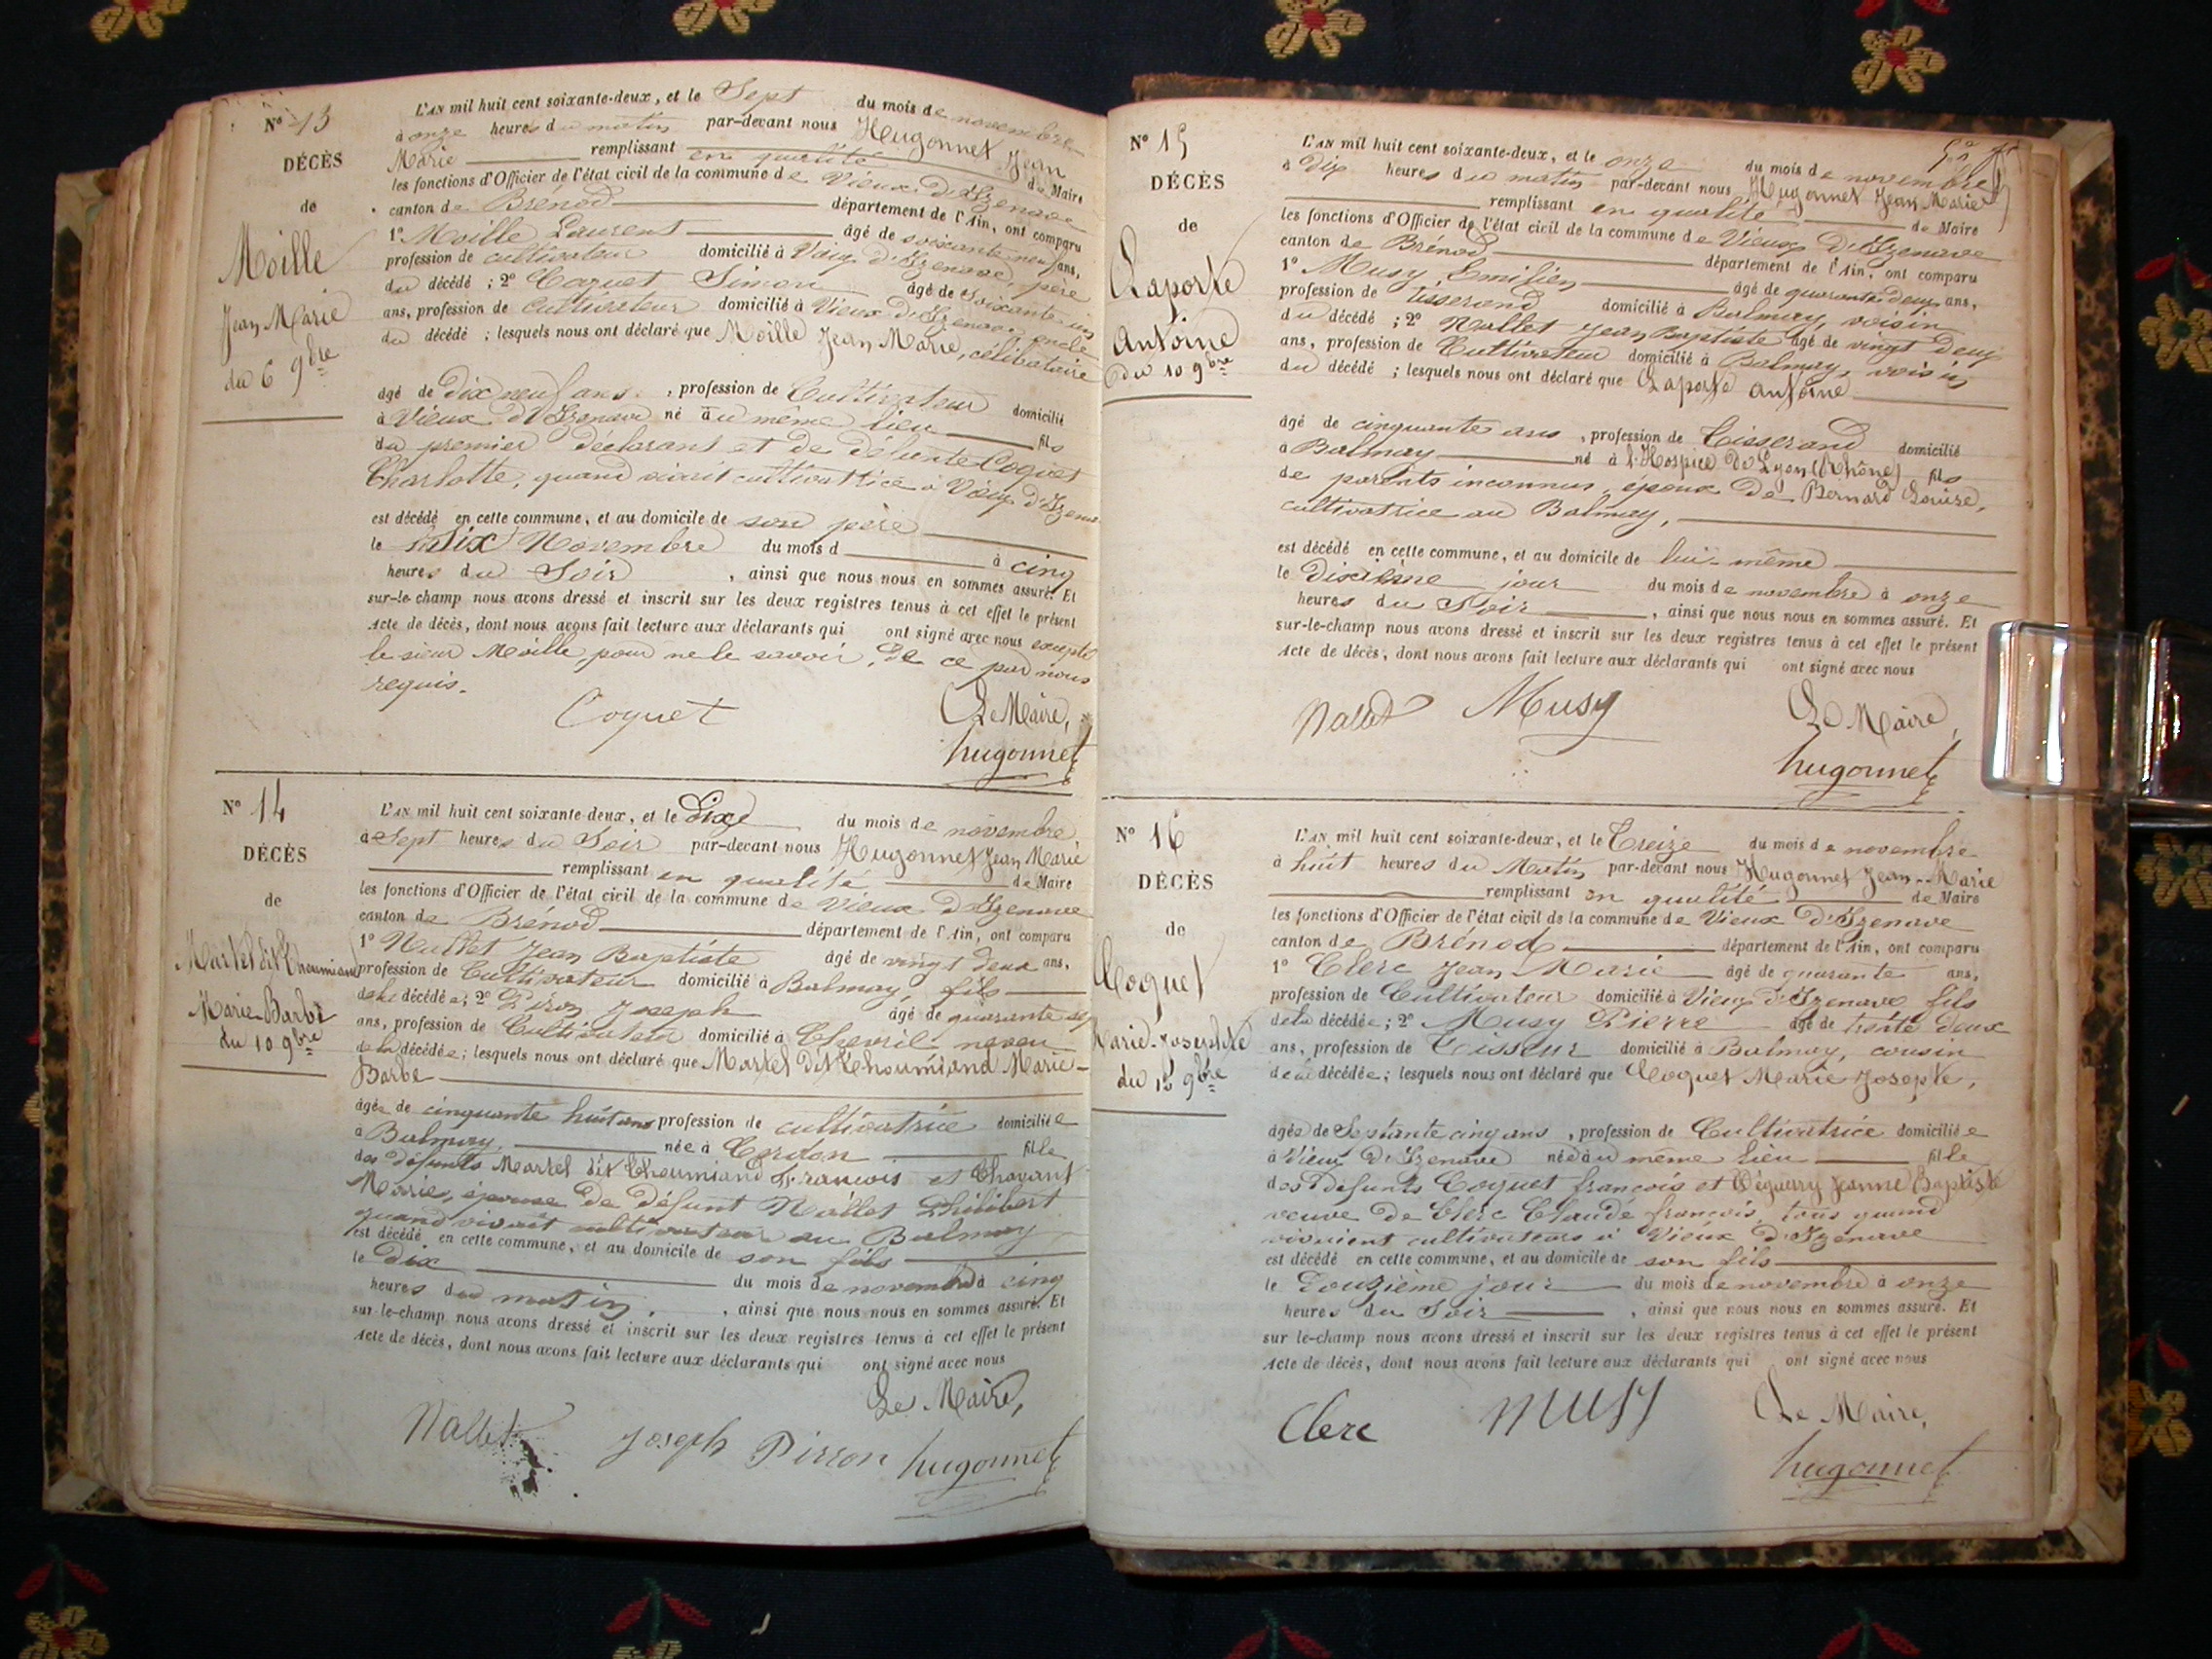 N° 13
DÉCÈS
de
Moille
Jean Marie
du 6 9bre
L'AN mil huit cent soixante-deux, et le Sept du mois de novembre
à onze heures du matin par-devant nous Hugonnet Jean
Marie remplissant en qualité de Maire
les fonctions d'Officier de l'état civil de la commune de Vieux d'Izenave
canton de Brénod département de l'Ain, ont comparu
1° Moille Laurent âgé de soixante neuf ans,
profession de cultivateur domicilié à Vieux d'Izenave, père
du décédé ; 2° Coquet Simon âgé de soixante un
ans, profession de cultivateur domicilié à Vieux d'Izenave oncle
du décédé ; lesquels nous ont déclaré que Moille Jean Marie, célibataire
âgé de dix neuf ans , profession de Cultivateur domicilié
à Vieux d'Izenave né au même lieu fils
du premier déclarant et de défunte Coquet
Charlotte, quand vivait cultivatrice à Vieux d'Izenave
est décédé en cette commune, et au domicile de son père
le Six Novembre du mois d à cinq
heures du Soir , ainsi que nous nous en sommes assuré. Et
sur-le-champ nous avons dressé et inscrit sur les deux registres tenus à cet effet le présent
Acte de décès, dont nous avons fait lecture aux déclarants qui ont signé avec nous excepté
le sieur Moille pour ne le savoir, de ce par nous
requis.
Coquet Le Maire,
hugonnet
N° 14
DÉCÈS
de
Martel dit Thoumiand
Marie Barbe
du 10 9bre
L'AN mil huit cent soixante-deux, et le Dix du mois de novembre
à Sept heures du Soir par-devant nous Hugonnet Jean Marie
remplissant en qualité de Maire
les fonctions d'Officier de l'état civil de la commune de Vieux d'Izenave
canton de Brénod département de l'Ain, ont comparu
1° Nallet Jean Baptiste âgé de vingt deux ans,
profession de Cultivateur domicilié à Balmay, fils
de la décédée; 2° Piron Joseph âgé de quarante
ans, profession de Cultivateur domicilié à Chevril neveu
de la décédée; lesquels nous ont déclaré que Martel dit Thoumiand Marie-
Barbe
âgée de cinquante huit ans profession de cultivatrice domiciliée
à Balmay, née à Cerdon fille
des défunts Martel dit Thoumiand François et Chavant
Marie, épouse de défunt Nallet Philibert
quand vivait cultivateur au Balmay,
est décédé en cette commune, et au domicile de son fils
le Dix du mois de novembre à cinq
heures du matin , ainsi que nous nous en sommes assuré. Et
sur-le-champ nous avons dressé et inscrit sur les deux registres tenus à cet effet le présent
Acte de décès, dont nous avons fait lecture aux déclarants qui ont signé avec nous
Le Maire,
Nallet Joseph Pirron hugonnet
N° 15
DÉCÈS
de
Laporte
Antoine
du 10 9bre
L'AN mil huit cent soixante-deux, et le onze du mois de novembre
à dix heures du matin par-devant nous Hugonnet Jean Marie
remplissant en qualité de Maire
les fonctions d'Officier de l'état civil de la commune de Vieux d'Izenave
canton de Brénod département de l'Ain, ont comparu
1° Musy Emilien âgé de quarante deux ans,
profession de tisserand domicilié à Balmay, voisin
du décédé ; 2° Nallet Jean Baptiste âgé de vingt deux
ans, profession de Cultivateur domicilié à Balmay, voisin
du décédé ; lesquels nous ont déclaré que Laporte Antoine
âgé de cinquante ans , profession de Tisserand domicilié
à Balmay né à l'Hospice de Lyon (Rhône) fils
de parents inconnus, époux de Bernard Louise,
cultivatrice au Balmay,
est décédé en cette commune, et au domicile de lui-même
le Dixième jour du mois de novembre à onze
heures du Soir , ainsi que nous nous en sommes assuré. Et
sur-le-champ nous avons dressé et inscrit sur les deux registres tenus à cet effet le présent
Acte de décès, dont nous avons fait lecture aux déclarants qui ont signé avec nous
Nallet Musy Le Maire,
hugonnet
N° 16
DÉCÈS
de
Coquet
Marie-Josephte
du 12 9bre
L'AN mil huit cent soixante-deux, et le Treize du mois de novembre
à huit heures du Matin par-devant nous Hugonnet Jean-Marie
remplissant en qualité de Maire
les fonctions d'Officier de l'état civil de la commune de Vieux d'Izenave
canton de Brénod département de l'Ain, ont comparu
1° Clerc Jean Marie âgé de quarante ans,
profession de Cultivateur domicilié à Vieux d'Izenave fils
de la décédée; 2° Musy Pierre âgé de trente deux
ans, profession de Tisseur domicilié à Balmay, cousin
de la décédée; lesquels nous ont déclaré que Coquet Marie Josephte,
âgée de Septante cinq ans , profession de Cultivatrice domiciliée
à Vieux d'Izenave née au même lieu fille
des défunts Coquet françois et Déguerry Jeanne Baptiste
veuve de Clerc Claude françois, tous quand
vivaient cultivateurs à Vieux d'Izenave
est décédé en cette commune, et au domicile de son fils
le Douzième jour du mois de novembre à onze
heures du Soir , ainsi que nous nous en sommes assuré. Et
sur le-champ nous avons dressé et inscrit sur les deux registres tenus à cet effet le présent
Acte de décès, dont nous avons fait lecture aux déclarants qui ont signé avec nous
Clerc MUSY Le Maire,
hugonnet